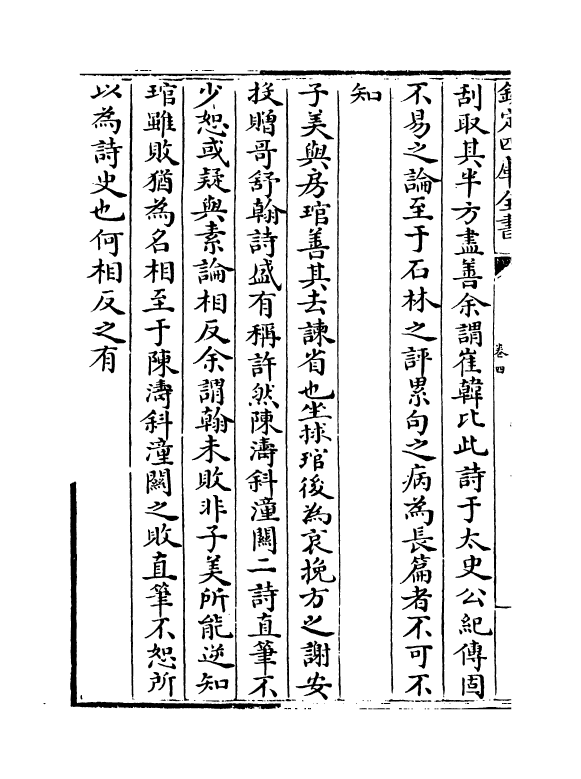 欽定四庫全書
卷四
刮取其半方盡善余謂崔韓比此詩于太史公紀傳固
不易之論至于石林之評累句之病為長篇者不可不
知
子美與房琯善其去諫省也坐捄琯後為哀挽方之謝安
投贈哥舒翰詩盛有稱許然陳濤斜潼關二詩直筆不
少恕或疑與素論相反余謂翰未敗非子美所能逆知
琯雖敗猶為名相至于陳濤斜潼關之敗直筆不恕所
以為詩史也何相反之有